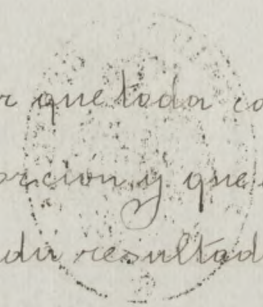 r que toda co
orcion y que
du resultad